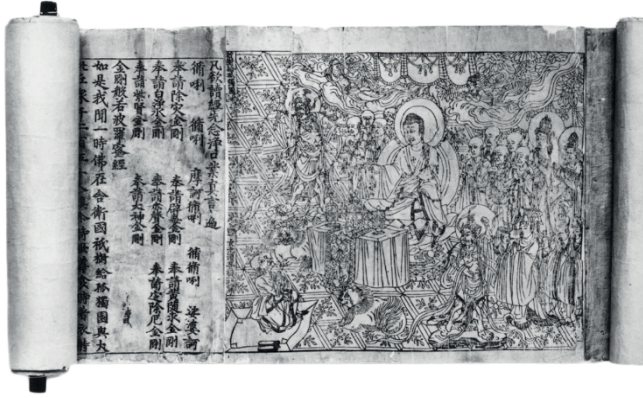 凡欲讀經先念淨口業真言遍
脩唎 脩唎 摩訶脩唎 脩脩唎 娑婆訶
奉請除灾金剛 奉請辟毒金剛 奉請黃隨求金剛
奉請白淨水金剛 奉請赤聲金剛 奉請定除厄金剛
奉請紫賢金剛 奉請大神金剛
金剛般若波羅蜜經
如是我聞一時佛在舍衛國祇樹給孤獨園與大
比丘衆千二百五